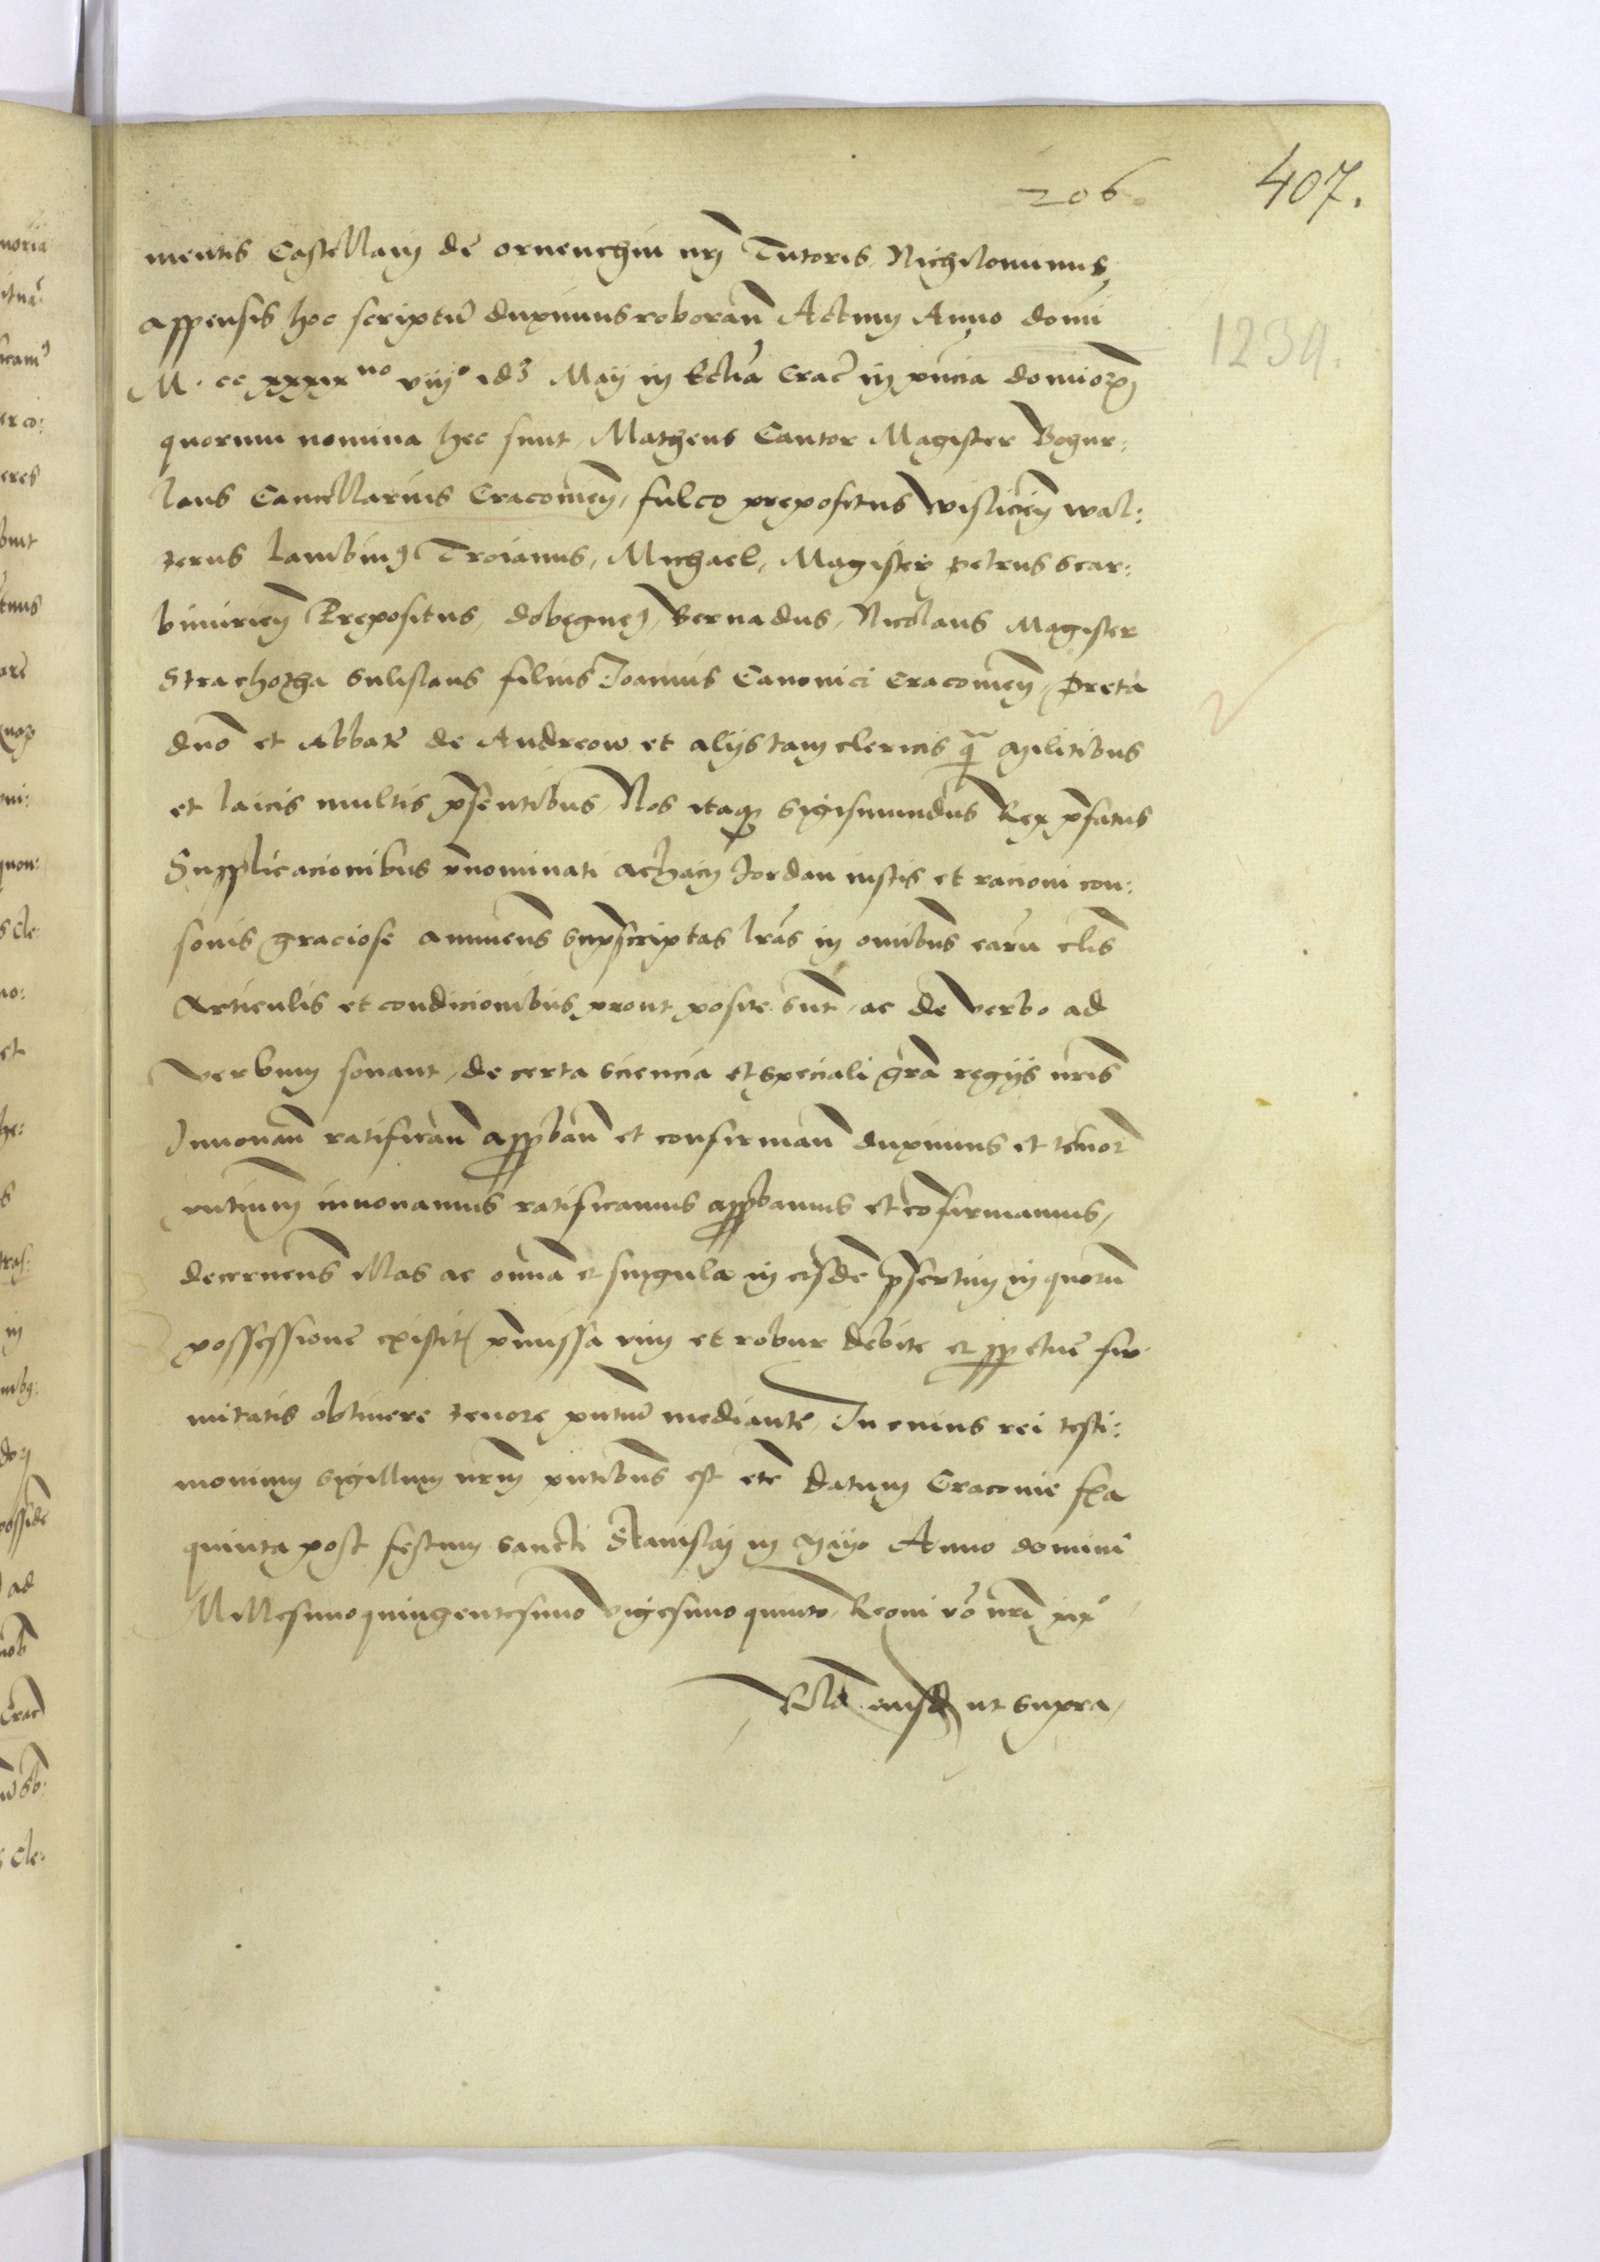 206.
407.
mentis Castellani de ornenchin nrj Tutoris Nichilominus
appensis hoc scriptu duximus roboran Actum Anno domi
1239.
M. cc xxxix no viijo id3 Maij in Ecclia Crac in pncia dominorz
quorum nomina hec sunt Matheus Cantor Magister Bogur:
laus Cancellarius Cracovien, fulco prepositus Wislicien wal:
terus Lambinj Troianus, Michael, Magister petrus scar:
bimirien Prepositus, dobegnej, Bernadus, Nicolaus Magister
Strachotha sulislaus filius Joannis Canonici Cracovien, Preta
dno et Abbate de Andreow et alijs tam clericis q militibus
et laicis multis psentibus Nos itaq Sigismundus Rex pfatus
Supplicacionibus pnominati achacij Jordan iustis et racioni con:
sonis graciose annuens supscriptas lras in omibus earu clis
Articulis et condicionibus prout posite sunt, ac de verbo ad
verbum sonant, de certa sciencia et speciali gra regijs nris
Innovan ratifican appban et confirman duximus et tenor
pntium innovamus ratificamus appbamus et cofirmamus,
decernens illas ac omnia et singula in eisde psertim in quoru
possessione existit pmissa vim et robur debite et ppetue fir
mitatis obtinere tenore pntiu mediante, In cuius rei testi:
monium sigillum nrm pntibus est etc datum Cracovie fia
quinta post festum sancti Stanislaj in maijo Anno domini
Millesimo quingentesimo vigesimo quinto, Regni vo nri xixo
Rlo eiusd ut supra,